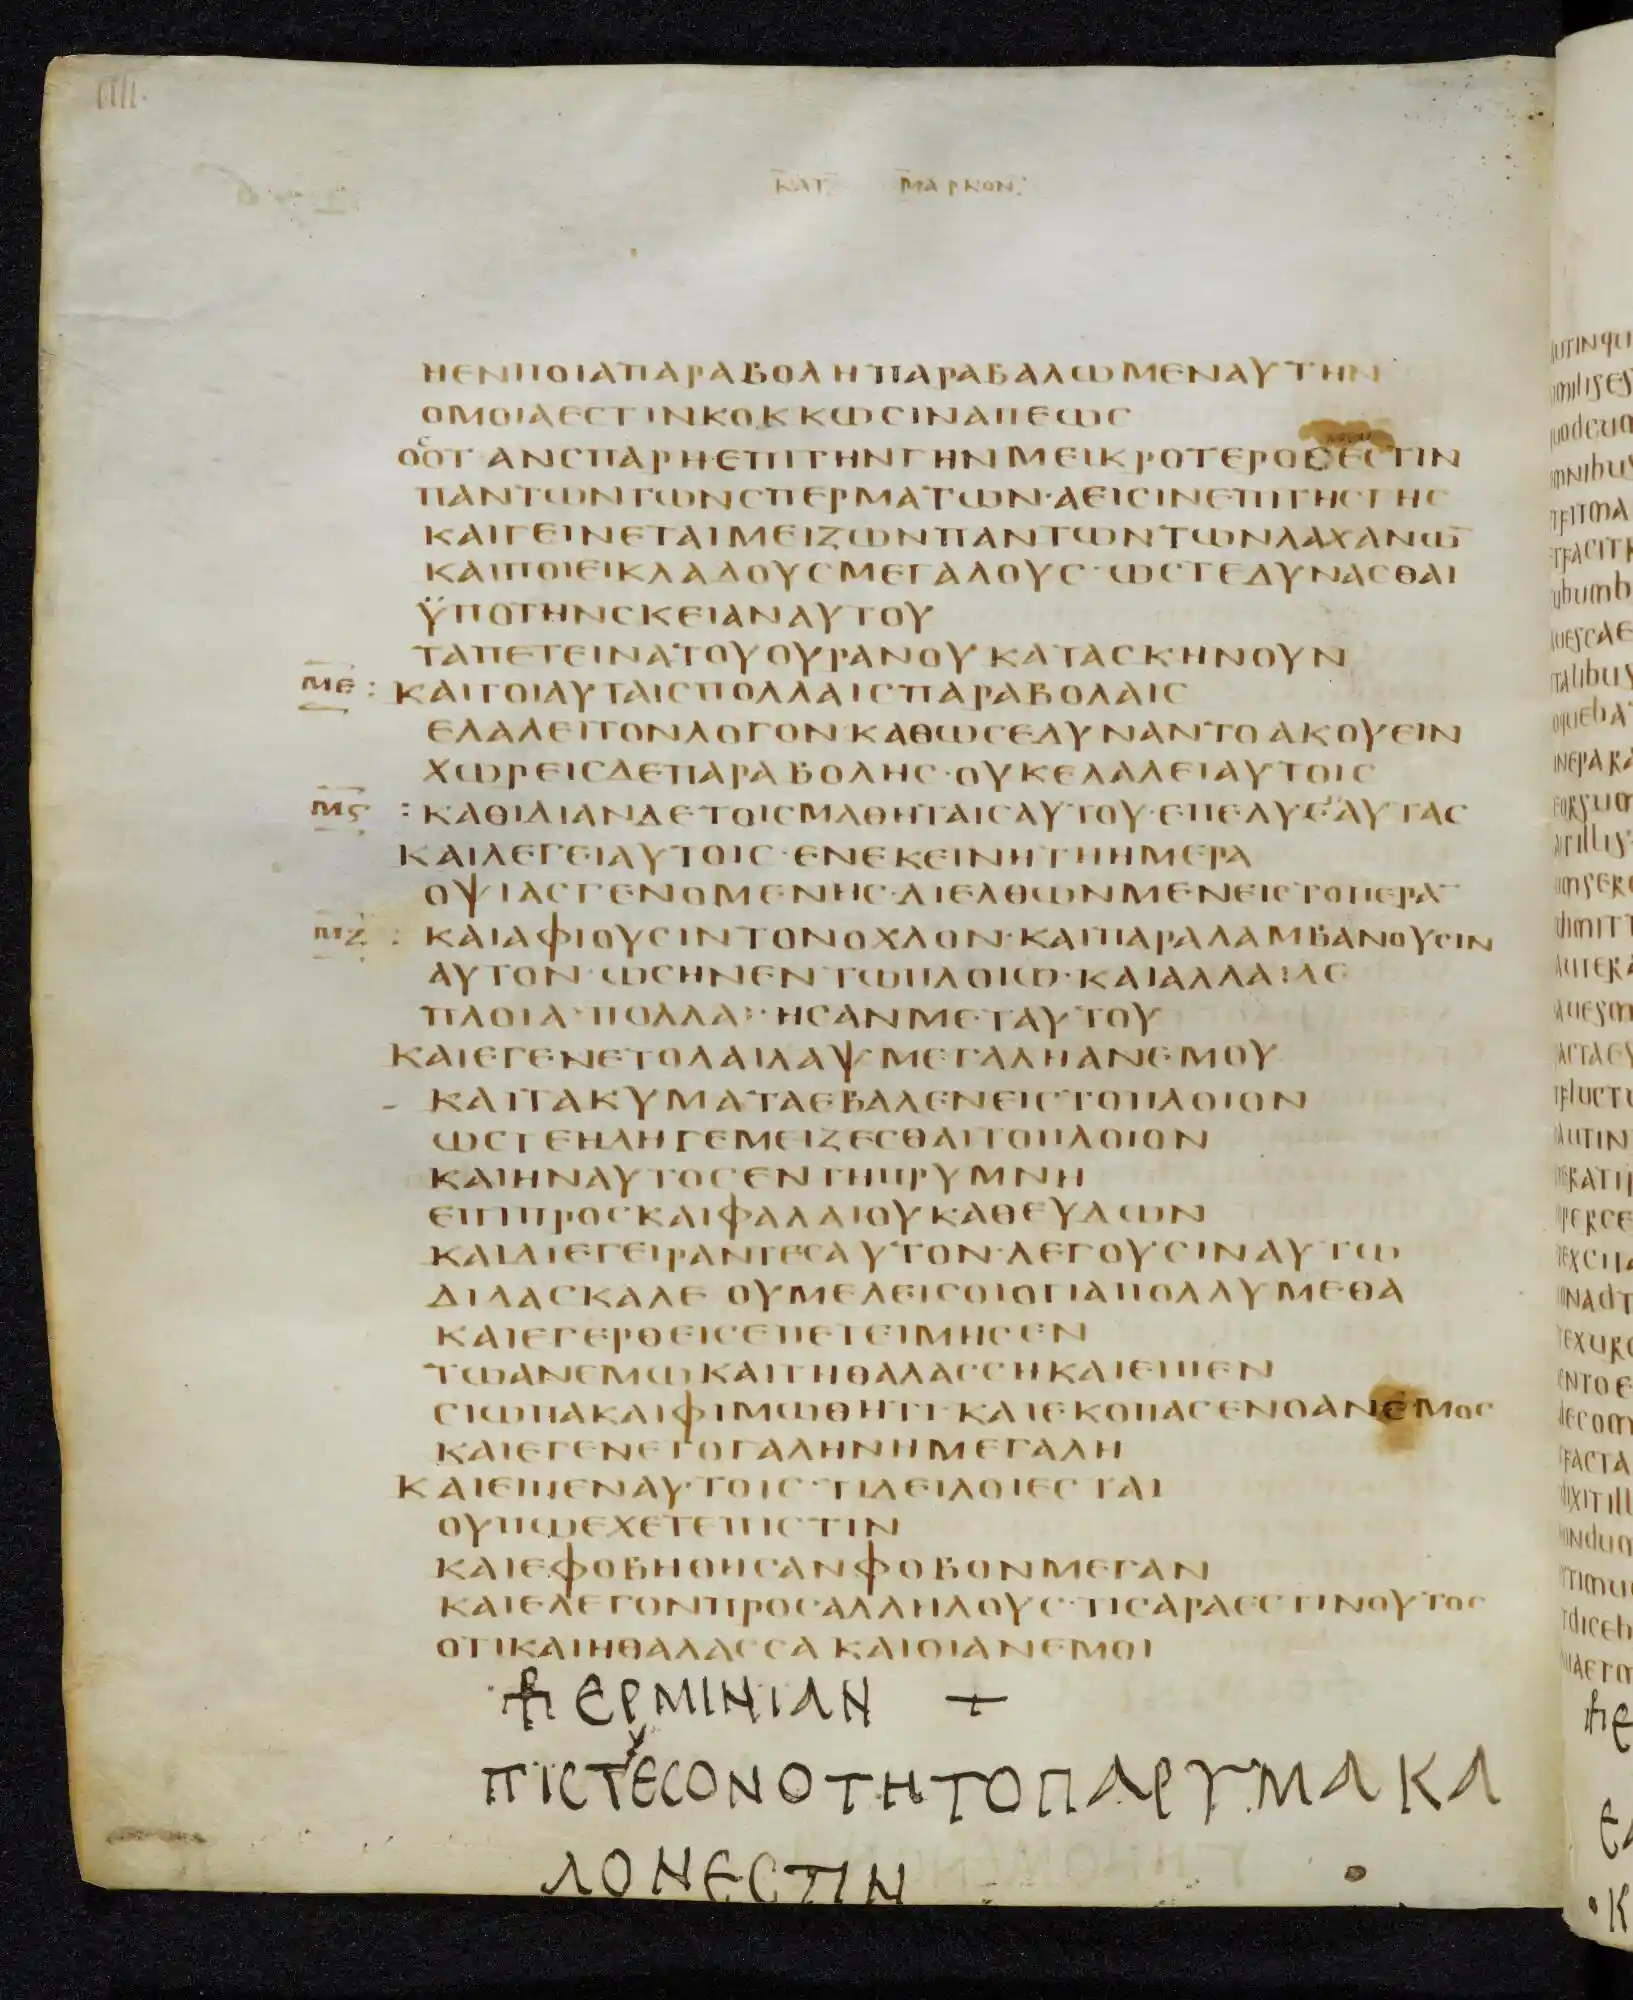 ΚΑΤ ΜΑΡΚΟΝ:
ΗΕΝΠΟΙΑΠΑΡΑΒΟΛΗΠΑΡΑΒΑΛΩΜΕΝΑΥΤΗΝ
ΟΜΟΙΑΕΣΤΙΝΚΟΚΚΩΣΙΝΑΠΕΩΣ
ΟΣΟΤΑΝΣΠΑΡΗ·ΕΠΙΤΗΝΓΗΝΜΕΙΚΡΟΤΕΡΟΣΕΣΤΙΝ
ΠΑΝΤΩΝΤΩΝΣΠΕΡΜΑΤΩΝ·ΑΕΙΣΙΝΕΠΙΤΗΣΓΗΣ
ΚΑΙΓΕΙΝΕΤΑΙΜΕΙΖΩΝΠΑΝΤΩΝΤΩΝΛΑΧΑΝΩ̅
ΚΑΙΠΟΙΕΙΚΛΑΔΟΥΣΜΕΓΑΛΟΥΣ·ΩΣΤΕΔΥΝΑΣΘΑΙ
ΫΠΟΤΗΝΣΚΕΙΑΝΑΥΤΟΥ
ΤΑΠΕΤΕΙΝΑΤΟΥΟΥΡΑΝΟΥΚΑΤΑΣΚΗΝΟΥΝ
ΜΕ: ΚΑΙΤΟΙΑΥΤΑΙΣΠΟΛΛΑΙΣΠΑΡΑΒΟΛΑΙΣ
ΕΛΑΛΕΙΤΟΝΛΟΓΟΝ·ΚΑΘΩΣΕΔΥΝΑΝΤΟΑΚΟΥΕΙΝ
ΧΩΡΕΙΣΔΕΠΑΡΑΒΟΛΗΣ·ΟΥΚΕΛΑΛΕΙΑΥΤΟΙΣ
ΜϚ :ΚΑΘΙΔΙΑΝΔΕΤΟΙΣΜΑΘΗΤΑΙΣΑΥΤΟΥ·ΕΠΕΛΥΕ'ΑΥΤΑΣ
ΚΑΙΛΕΓΕΙΑΥΤΟΙΣ·ΕΝΕΚΕΙΝΗΤΗΗΜΕΡΑ
ΟΨΙΑΣΓΕΝΟΜΕΝΗΣ·ΔΙΕΛΘΩΜΕΝΕΙΣΤΟΠΕΡΑ̅
ΜΖ : ΚΑΙΑΦΙΟΥΣΙΝΤΟΝΟΧΛΟΝ·ΚΑΙΠΑΡΑΛΑΜΒΑΝΟΥΣΙΝ
ΑΥΤΟΝ·ΩΣΗΝΕΝΤΩΠΛΟΙΩ·ΚΑΙΑΛΛΑ:ΔΕ
ΠΛΟΙΑ·ΠΟΛΛΑ:·ΗΣΑΝΜΕΤΑΥΤΟΥ
ΚΑΙΕΓΕΝΕΤΟΛΑΙΛΑΨ·ΜΕΓΑΛΗΑΝΕΜΟΥ
ΚΑΙΤΑΚΥΜΑΤΑΕΒΑΛΕΝΕΙΣΤΟΠΛΟΙΟΝ
ΩΣΤΕΗΔΗΓΕΜΕΙΖΕΣΘΑΙΤΟΠΛΟΙΟΝ
ΚΑΙΗΝΑΥΤΟΣΕΝΤΗΠΡΥΜΝΗ
ΕΠΙΠΡΟΣΚΑΙΦΑΛΑΙΟΥΚΑΘΕΥΔΩΝ
ΚΑΙΔΙΕΓΕΙΡΑΝΤΕΣΑΥΤΟΝ·ΛΕΓΟΥΣΙΝΑΥΤΩ
ΔΙΔΑΣΚΑΛΕ ΟΥΜΕΛΕΙΣΟΙΟΤΙΑΠΟΛΛΥΜΕΘΑ
ΚΑΙΕΓΕΡΘΕΙΣΕΠΕΤΕΙΜΗΣΕΝ
ΤΩΑΝΕΜΩΚΑΙΤΗΘΑΛΑΣΣΗΚΑΙΕΙΠΕΝ
ΣΙΩΠΑΚΑΙΦΙΜΩΘΗΤΙ·ΚΑΙΕΚΟΠΑΣΕΝΟΑΝΕΜΟΣ
ΚΑΙΕΓΕΝΕΤΟΓΑΛΗΝΗΜΕΓΑΛΗ
ΚΑΙΕΙΠΕΝΑΥΤΟΙΣ·ΤΙΔΕΙΛΟΙΕΣΤΑΙ
ΟΥΠΩΕΧΕΤΕΠΙΣΤΙΝ
ΚΑΙΕΦΟΒΗΘΗΣΑΝΦΟΒΟΝΜΕΓΑΝ
ΚΑΙΕΛΕΓΟΝΠΡΟΣΑΛΛΗΛΟΥΣ·ΤΙΣΑΡΑΕΣΤΙΝΟΥΤΟΣ
ΟΤΙΚΑΙΗΘΑΛΑΣΣΑΚΑΙΟΙΑΝΕΜΟΙ
ΕΡΜΙΝΙΑΝ +
ΠΙΣΤΕΥΣΟΝΟΤΗΤΟΠΑΡΥΜΑΚΑ
ΛΟΝΕΣΤΙΝ